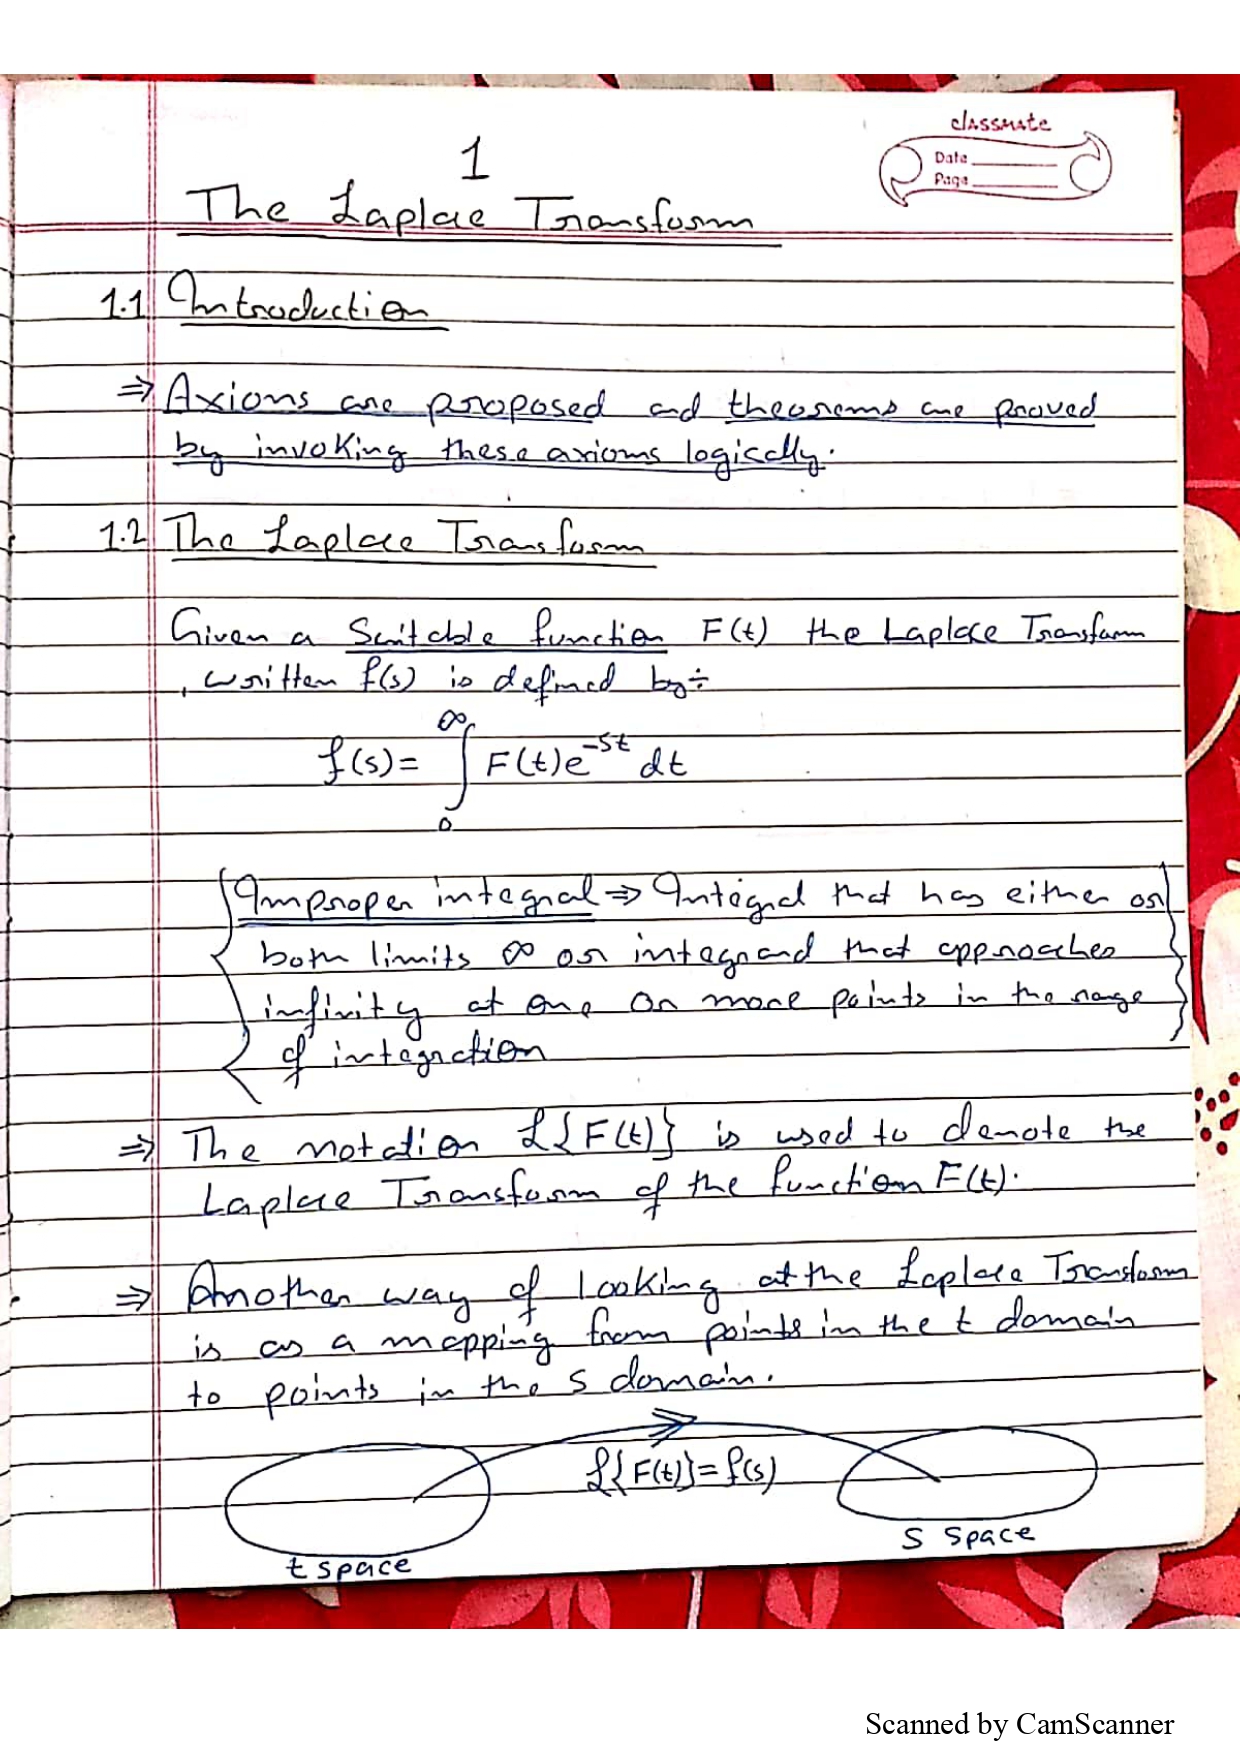 classmate
Date
Page
1
The Laplace Transform
1.1 Introduction
⇒ Axioms are proposed and theorems are proved
by invoking these axioms logically.
1.2 The Laplace Transform
Given a Suitable function F(t) the Laplace Transform
, written f(s) is defined by÷
f(s) = ∫₀^∞ F(t)e^{-st} dt
Improper integral ⇒ Integral that has either or
both limits ∞ or integrand that approaches
infinity at one or more points in the range
of integration
⇒ The notation ℒ{F(t)} is used to denote the
Laplace Transform of the function F(t).
⇒ Another way of looking at the Laplace Transform
is as a mapping from points in the t domain
to points in the s domain.
ℒ{F(t)} = f(s)
s space
t space
Scanned by CamScanner